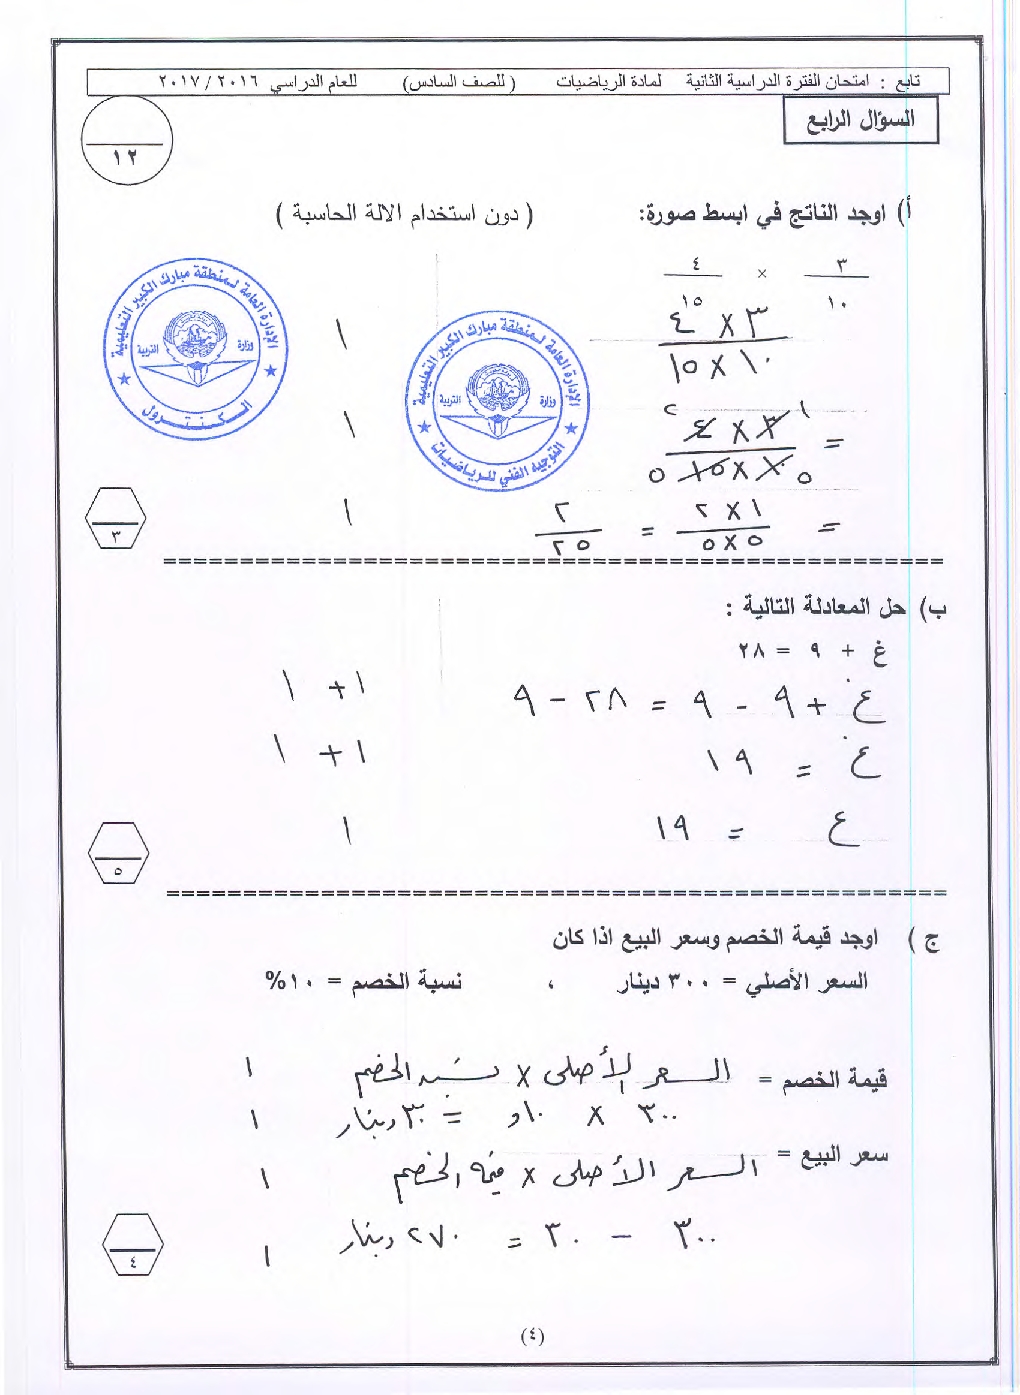 تابع : امتحان الفترة الدراسية الثانية لمادة الرياضيات (للصف السادس) للعام الدراسي ٢٠١٦ / ٢٠١٧
السؤال الرابع
١٢
أ) اوجد الناتج في ابسط صورة: ( دون استخدام الالة الحاسبة )
٣ × ٤
١٠ ١٥
٣ × ٤
١٠ × ١٥
١
الإدارة العامة لمنطقة مبارك الكبير التعليمية
وزارة التربية
الكنترول
الإدارة العامة لمنطقة مبارك الكبير التعليمية
وزارة التربية
التوجيه الفني للرياضيات
١ ٢
= ٣ × ٤ ١
٥ ١٠ × ١٥ ٥
= ١ × ٢ = ٢ ١
٥ × ٥ ٢٥
٣
ب) حل المعادلة التالية :
غ + ٩ = ٢٨
غ + ٩ - ٩ = ٢٨ - ٩ ١ + ١
غ = ١٩ ١ + ١
ع = ١٩ ١
٥
ج ) اوجد قيمة الخصم وسعر البيع اذا كان
السعر الأصلي = ٣٠٠ دينار ، نسبة الخصم = ١٠%
قيمة الخصم = السعر الأصلى × نسبة الخصم ١
٣٠٠ × ١٠و = ٣٠ دينار ١
سعر البيع = السعر الأصلى × قيمة الخصم ١
٣٠٠ - ٣٠ = ٢٧٠ دينار ١
٤
(٤)